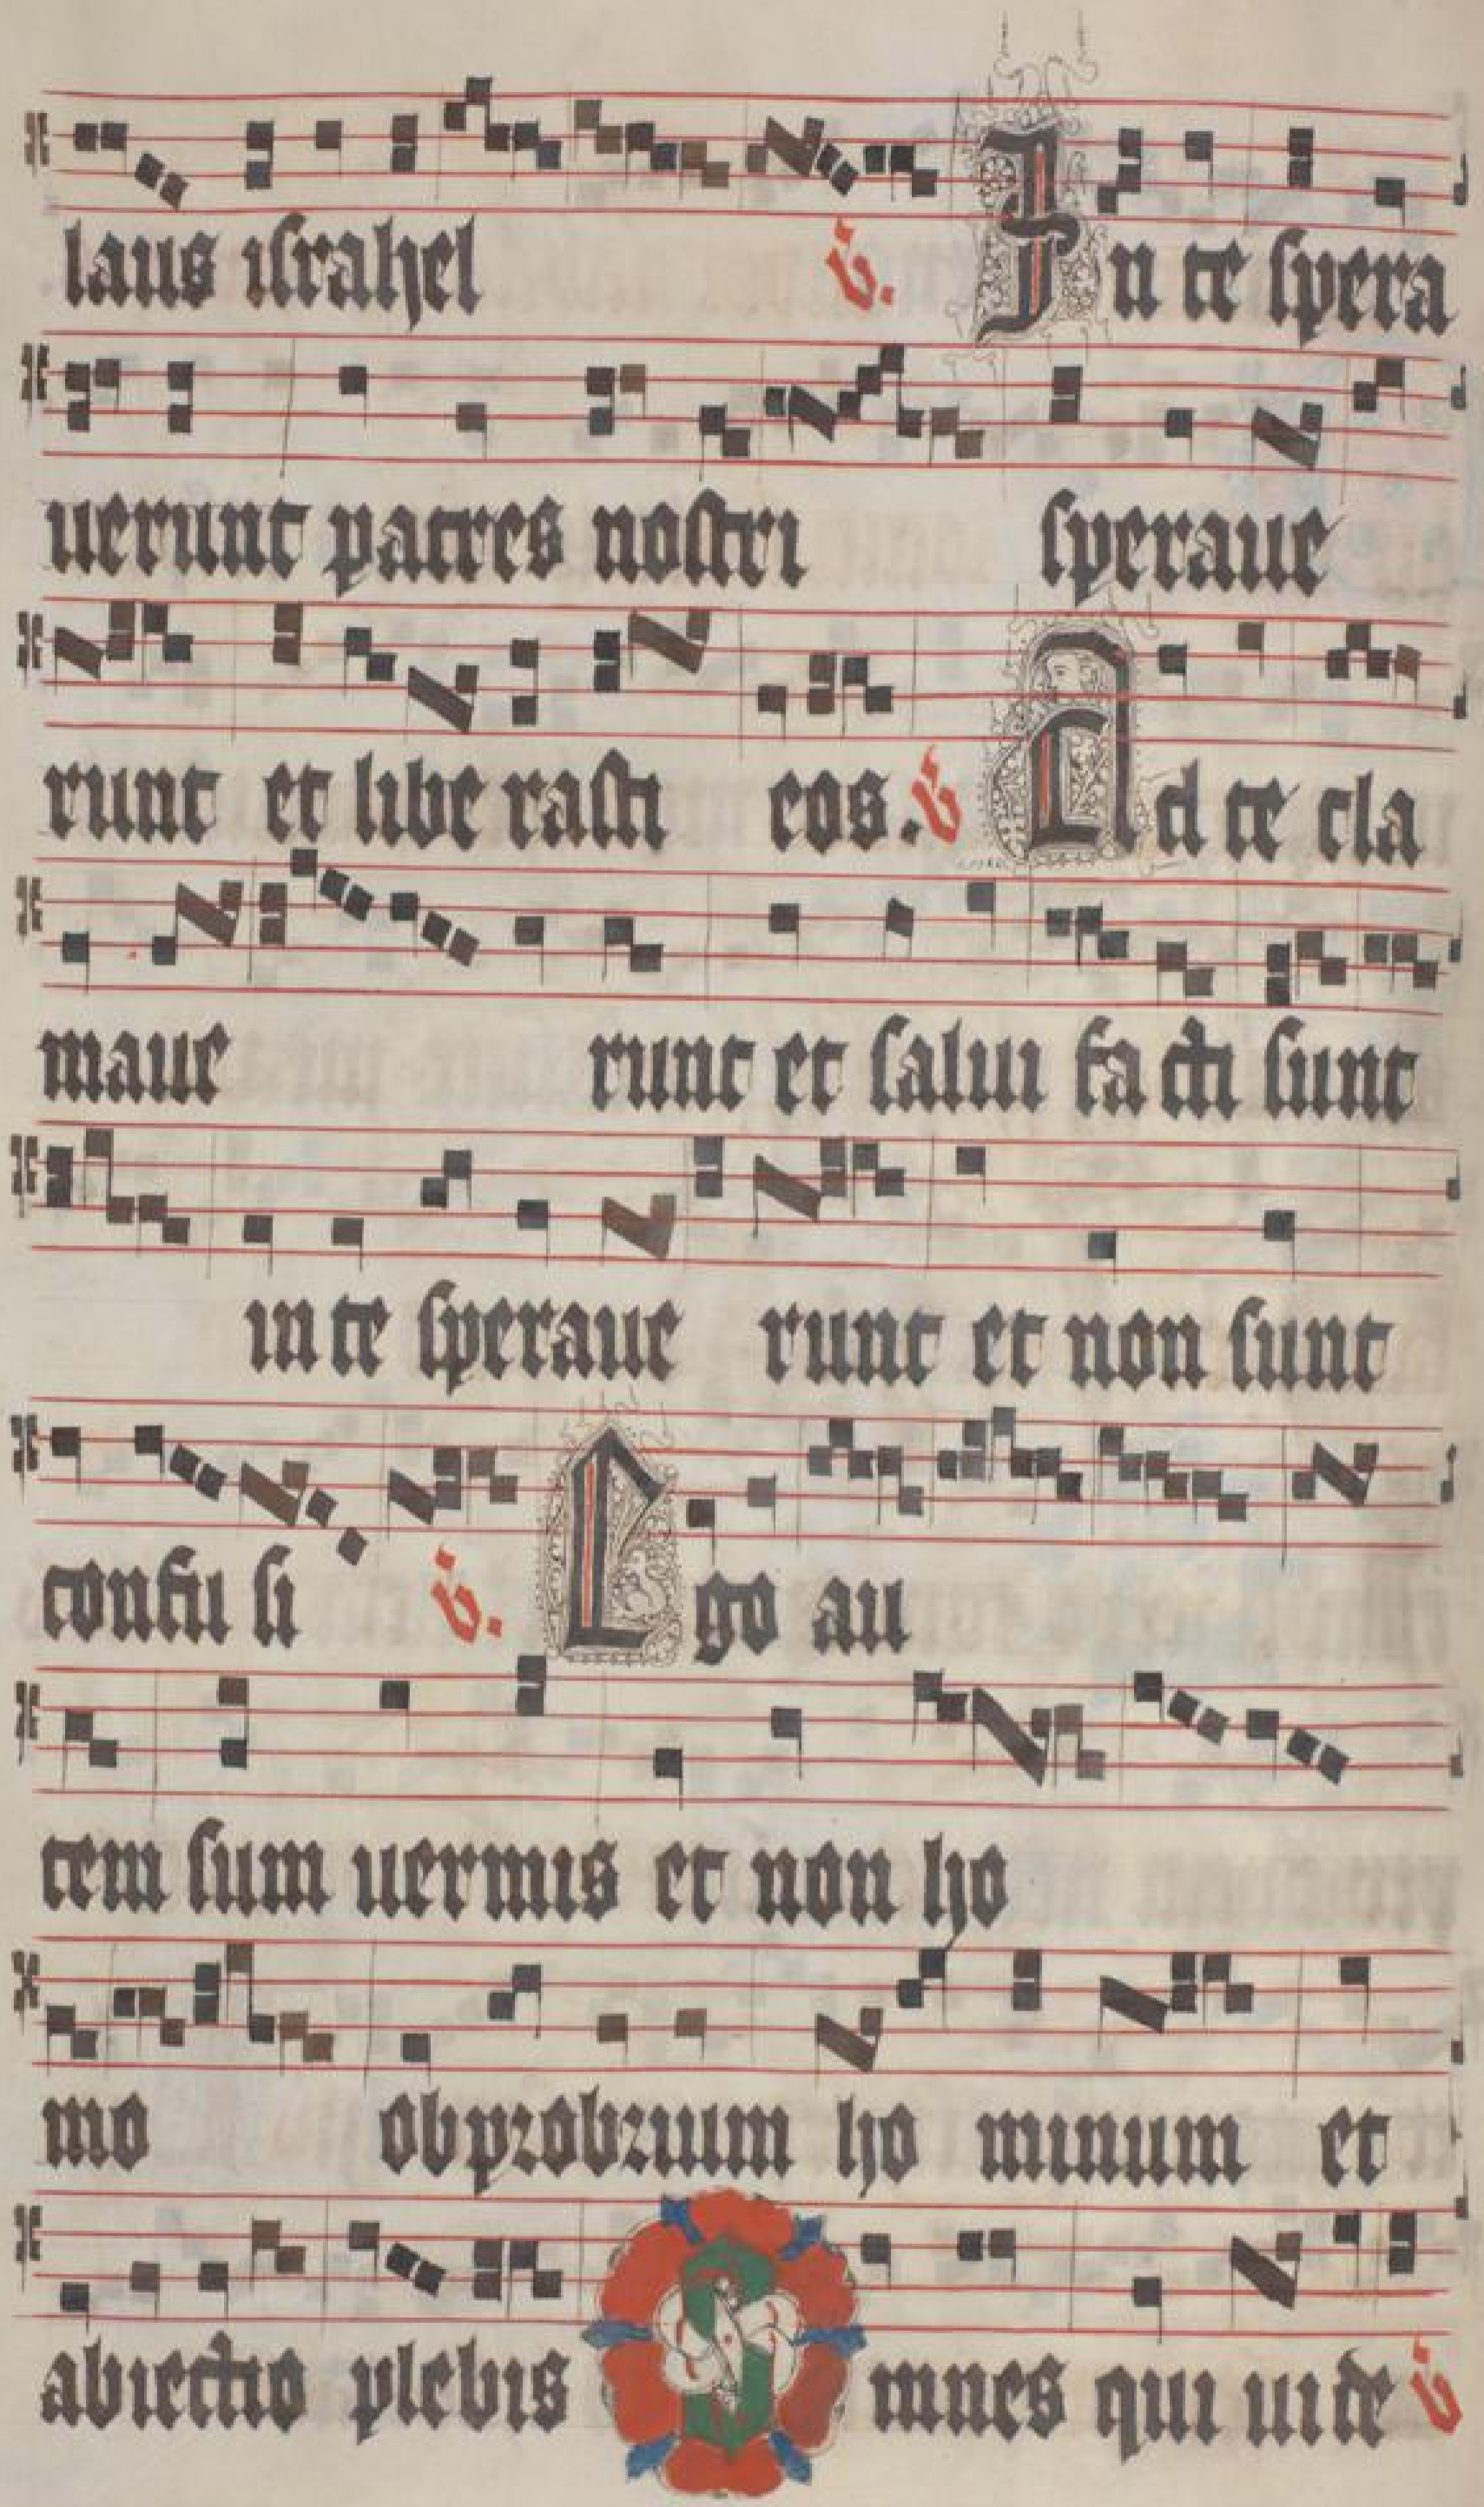 laus israhel ℣. In te spera
uerunt patres nostri speraue
runt et libe rasti eos. ℣ Ad te cla
maue runt et salui fa cti sunt
in te speraue runt et non sunt
confu si ℣. Ego au
tem sum uermis et non ho
mo obprobrium ho minum et
abiectio plebis Omnes qui uide ℣